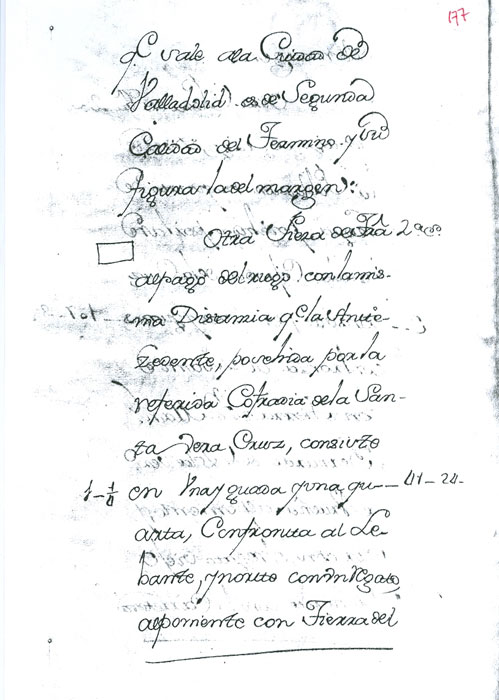 177
qe vale ala Ciudad de
Valladolid es de Segunda
Calidad del Termino y su
figura la del margen:
Otra Pieza de tra 2a
al pago del riego con la mis-
ma Distamia qe la Ante-
zedente, posehida por la
referida Cofradia de la San-
ta Vera Cruz, consiste
1-1/4 en Una yguada y una qu- 41-24-
arta, Confronta al Le-
bante, y norte con
al poniente con Tierra del